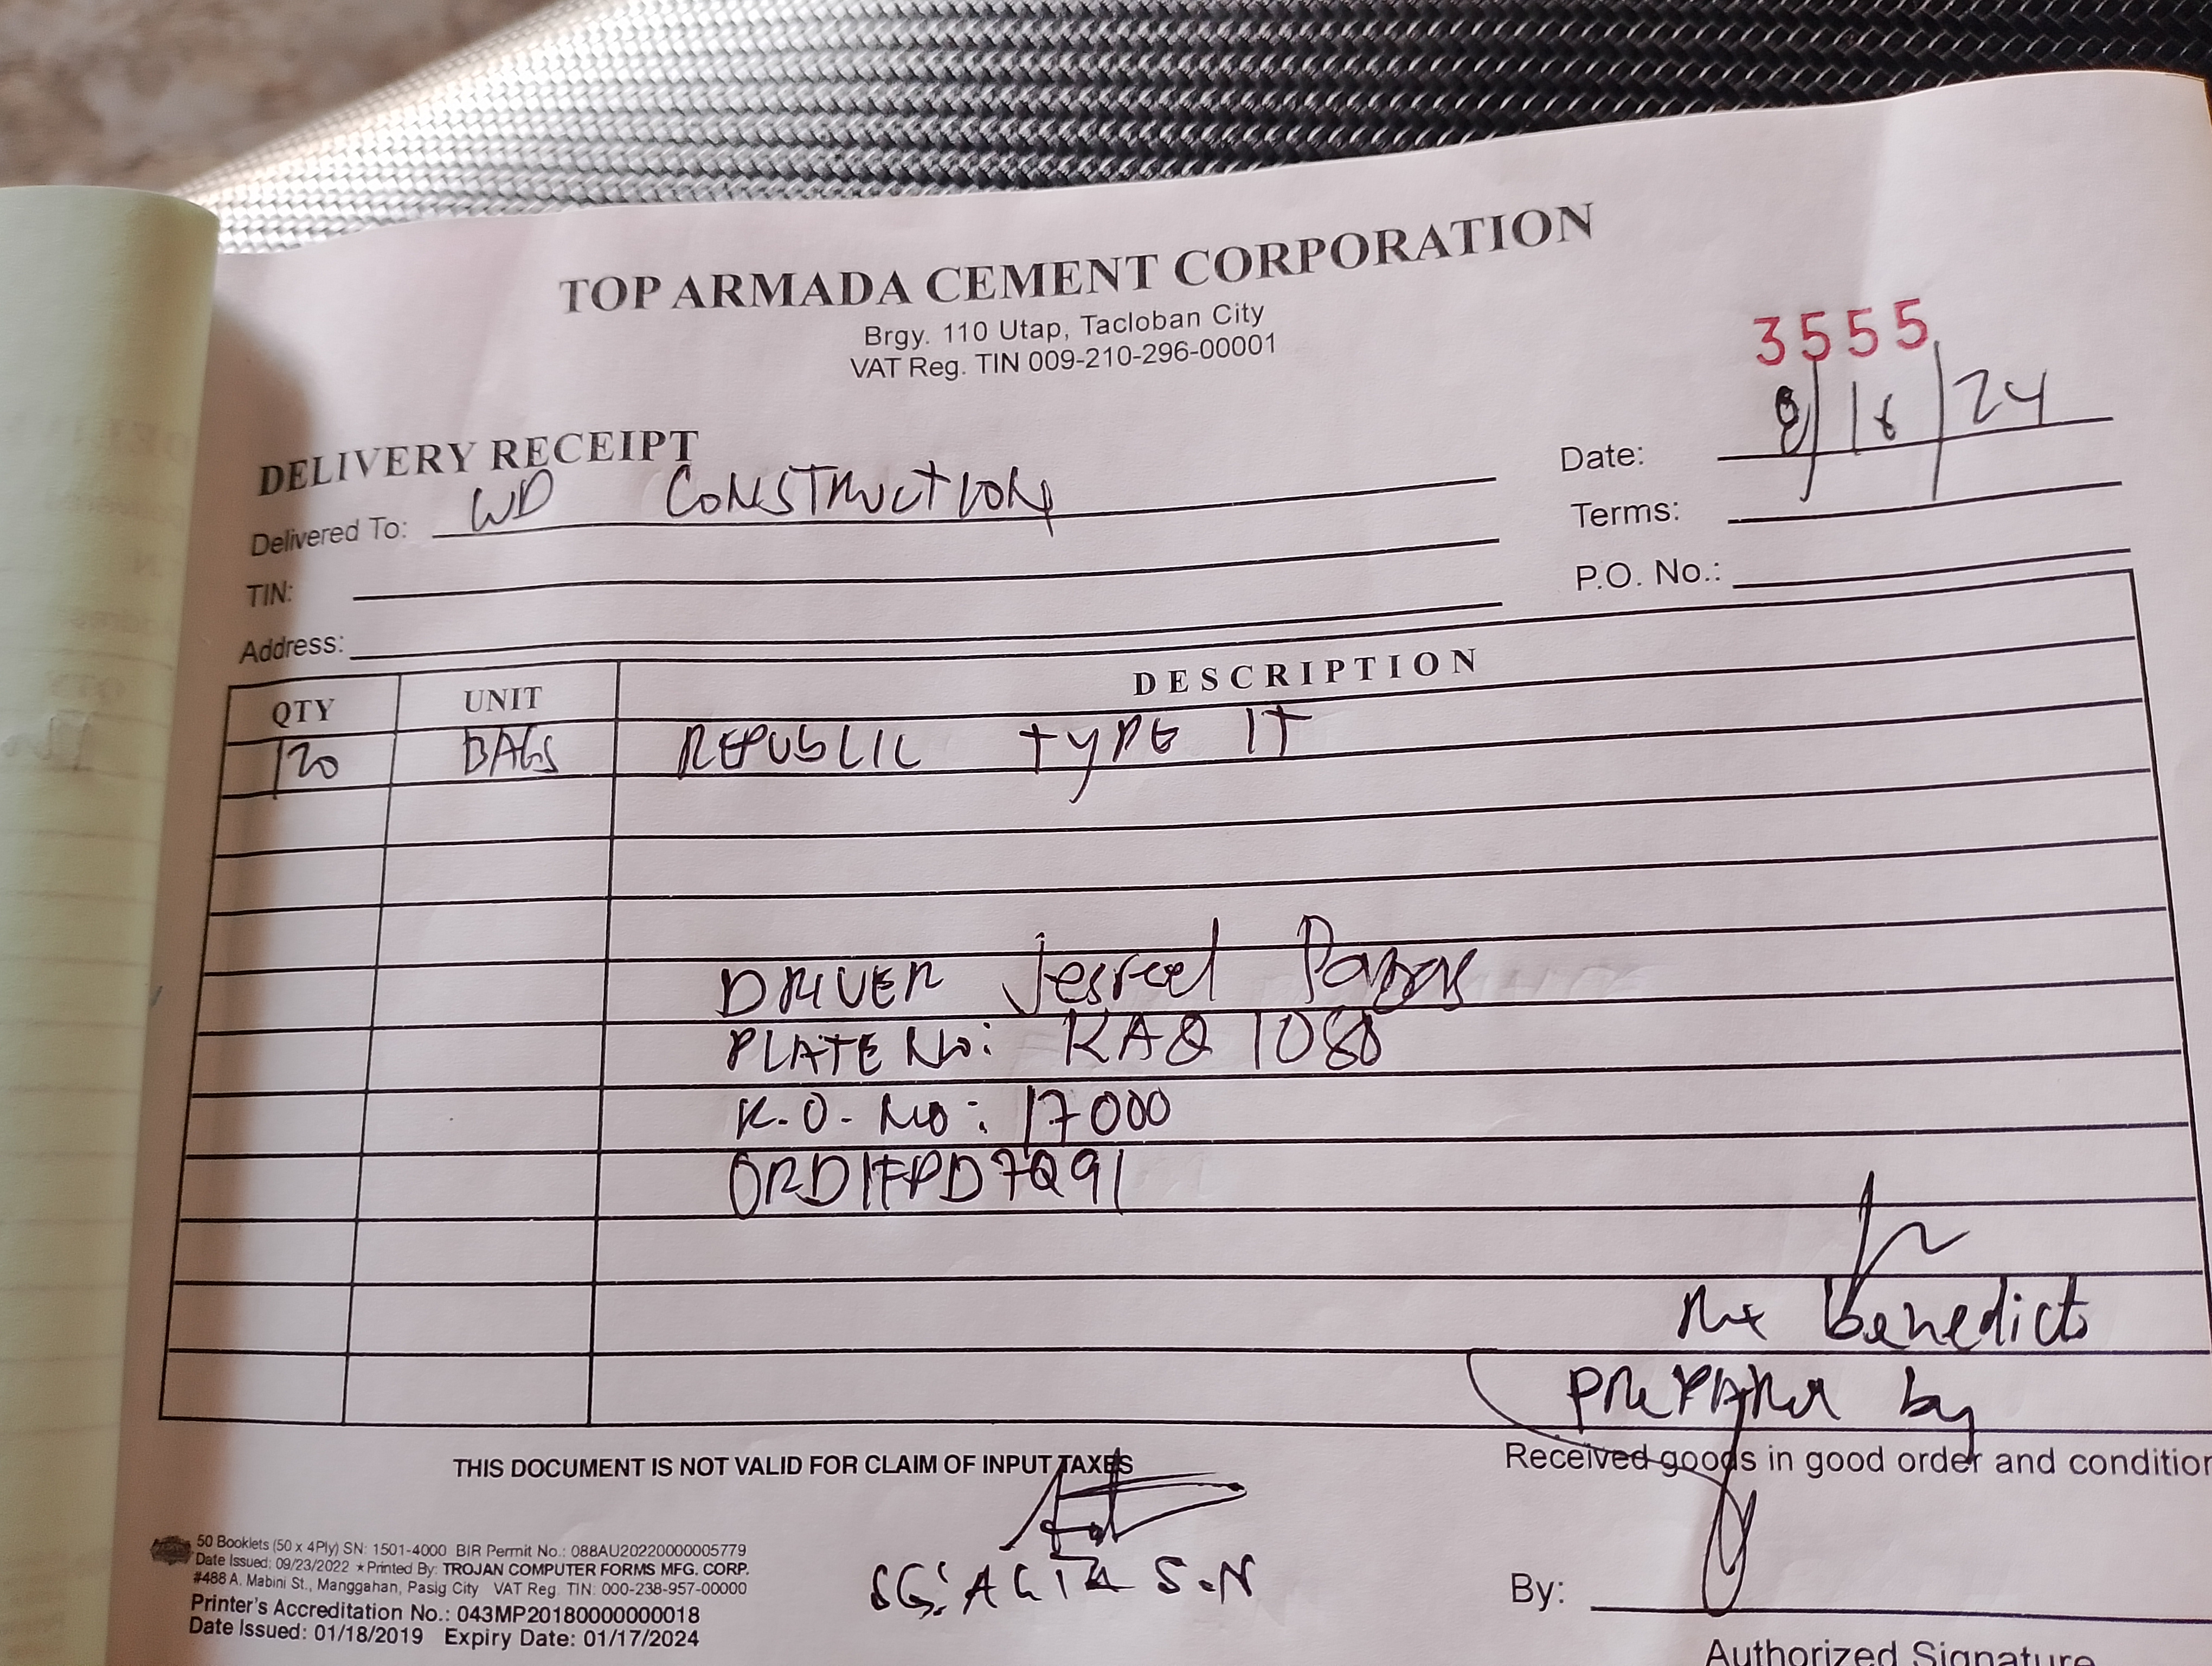 TOP ARMADA CEMENT CORPORATION
Brgy. 110 Utap, Tacloban City
VAT Reg. TIN 009-210-296-00001
3555
DELIVERY RECEIPT
Date: 8/16/24
Delivered To: WD CONSTRUCTION
Terms:
TIN:
P.O. No.:
Address:
QTY UNIT DESCRIPTION
120 BAGS REPUBLIC TYPE 1T
DRIVER Jesreel
PLATE No: KAQ 1088
K.O. No: 17000
ORD1FPD7Q91
Benedicto
by
THIS DOCUMENT IS NOT VALID FOR CLAIM OF INPUT TAXES
Received goods in good order and condition
50 Booklets (50 x 4Ply) SN: 1501-4000 BIR Permit No.: 088AU20220000005779
Date Issued: 09/23/2022 ★Printed By: TROJAN COMPUTER FORMS MFG. CORP.
#488 A. Mabini St., Manggahan, Pasig City VAT Reg. TIN: 000-238-957-00000
Printer's Accreditation No.: 043MP20180000000018
Date Issued: 01/18/2019 Expiry Date: 01/17/2024
SG: S.N
By:
Authorized Signature